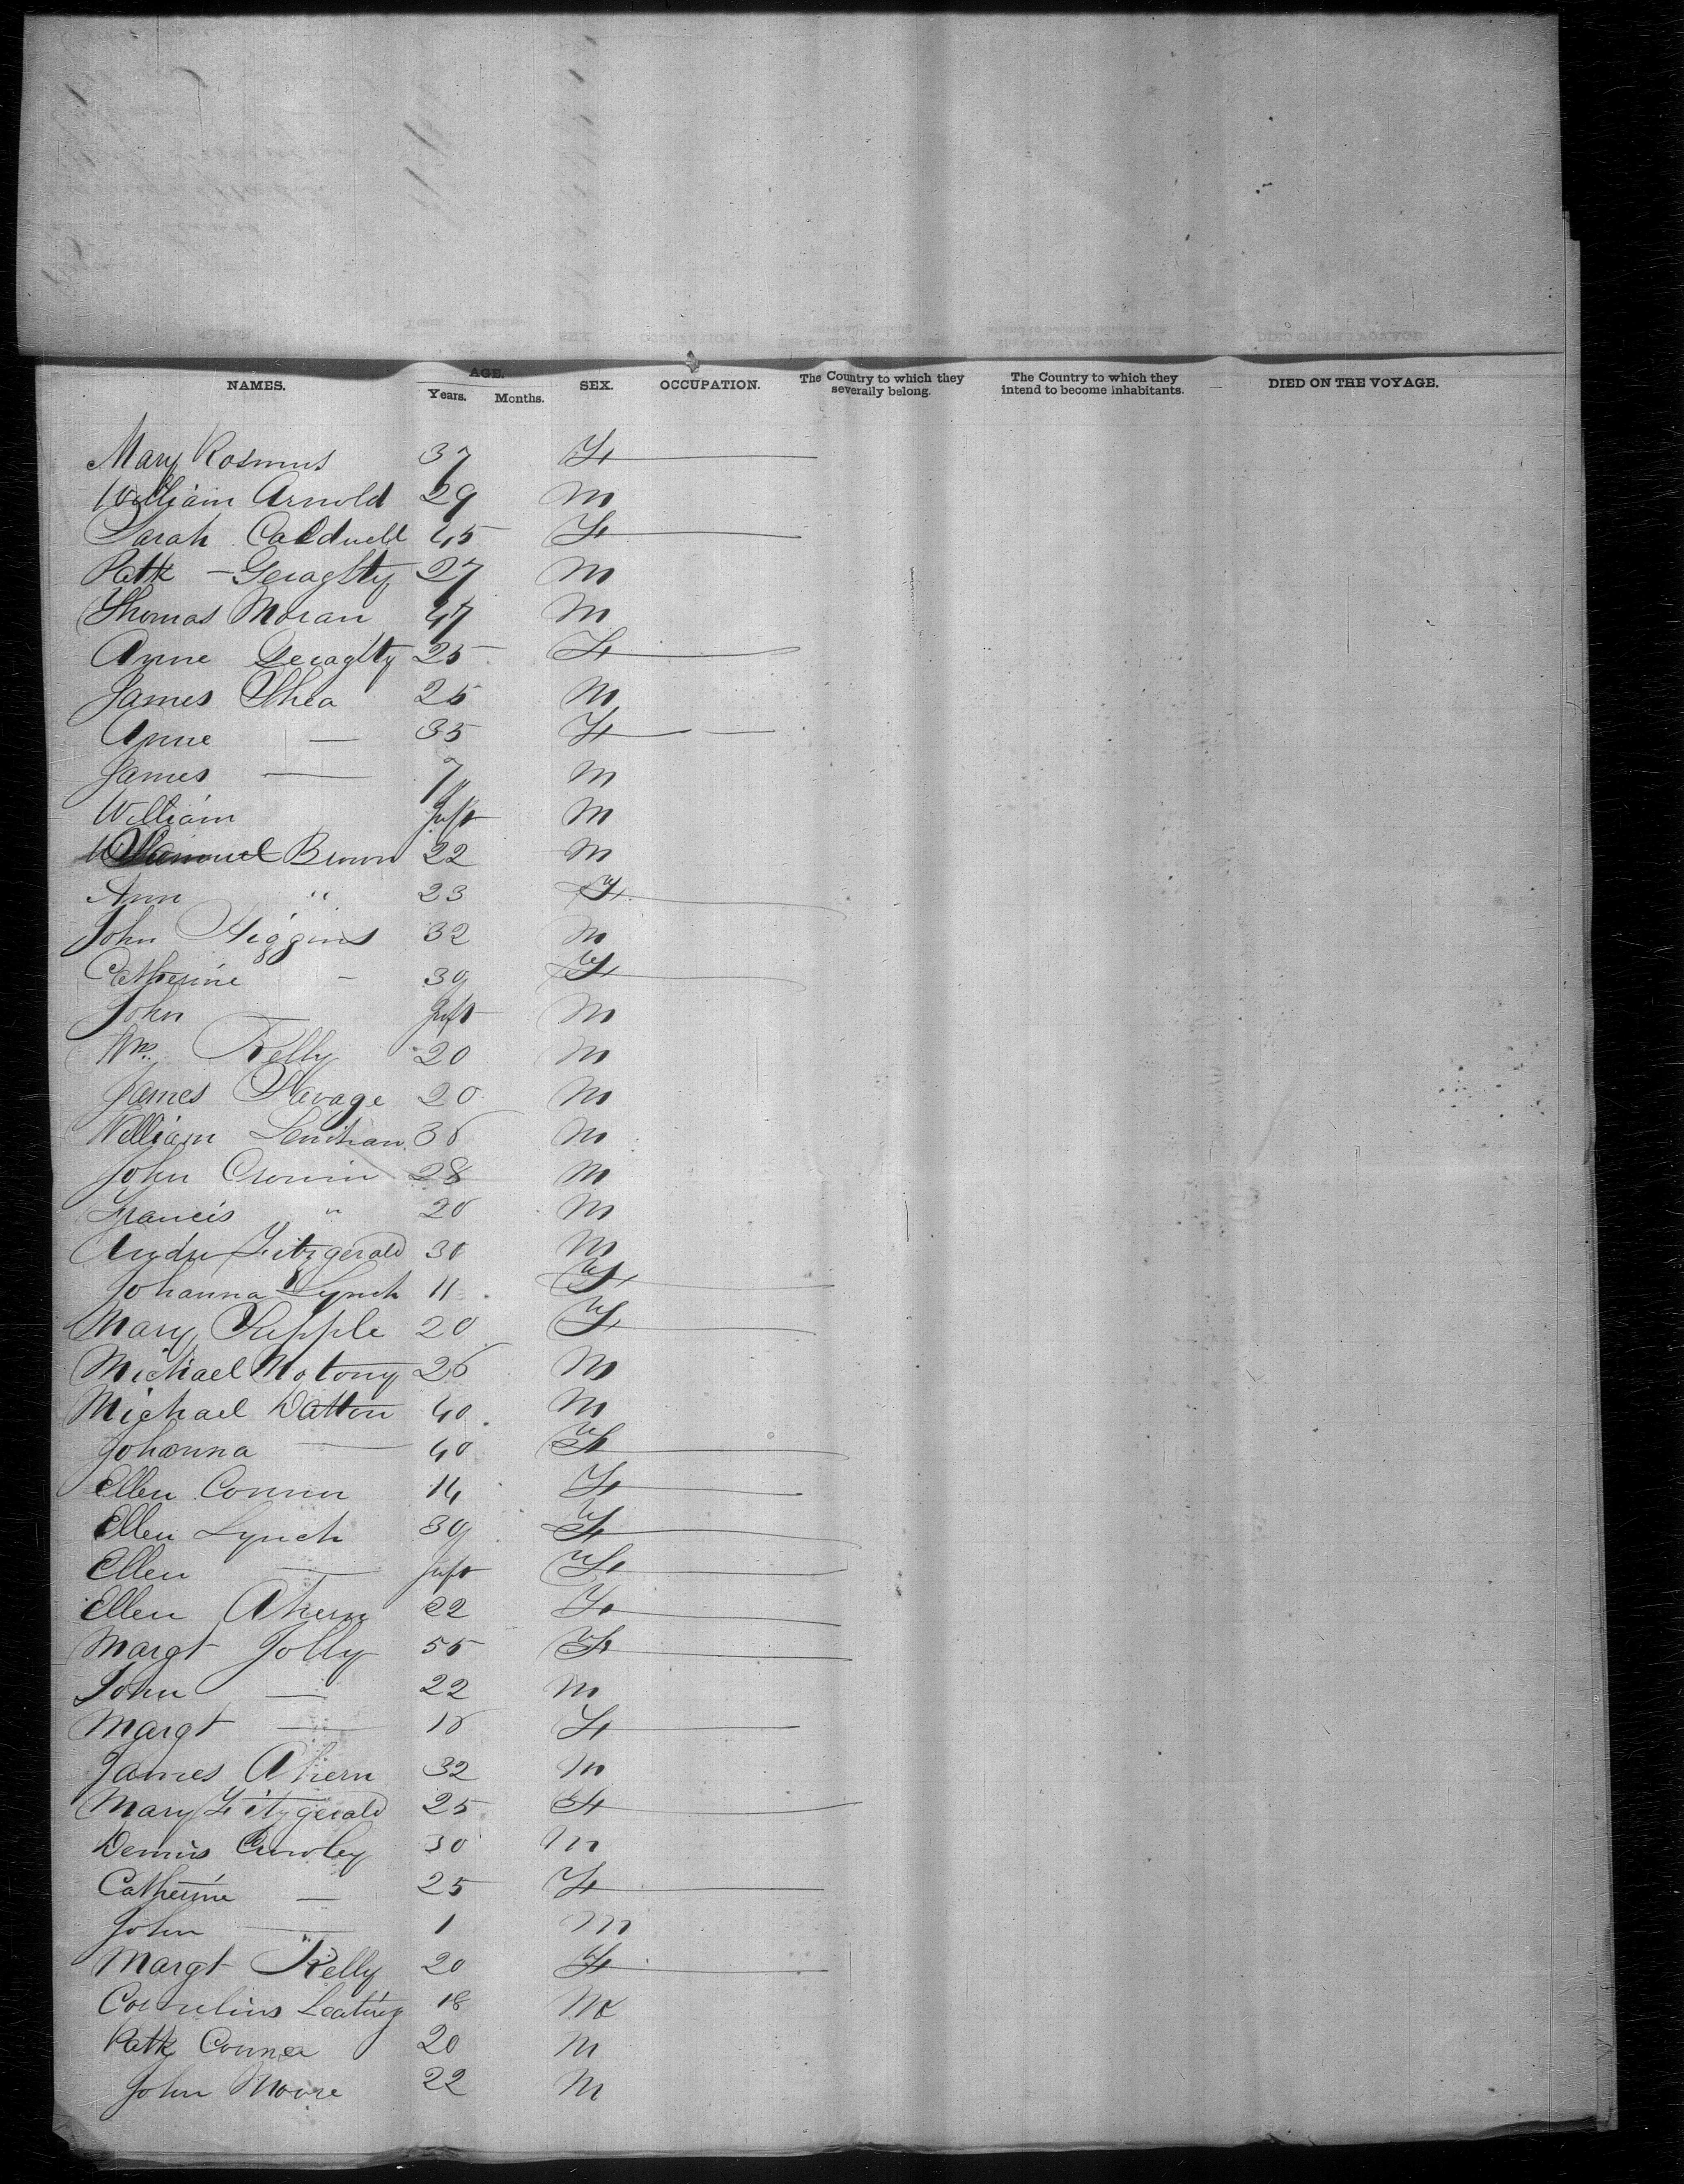 NAMES. AGE. Years. Months. SEX. OCCUPATION. The Country to which they severally belong. The Country to which they intend to become inhabitants. DIED ON THE VOYAGE.
Mary 37 F
William Arnold 29 M
Sarah Caldwell 45 F
Patk - Geraghty 27 M
Thomas Moran 47 M
Anne Geraghty 25 F
James Shea 25 M
Anne — 35 F
James — 7 M
William Inft M
Samuel Brown 22 M
Ann " 23 F
John Higgins 32 M
Catherine - 30 F
John Inft M
Wm. Kelly 20 M
James Savage 20 M
William Lenihan M
John Cronin 28 M
Francis " 20 M
Andw Fitzgerald 30 M
Johanna Lynch 11 F
Mary Supple 20 F
Michael M
Michael Dalton 40 M
Johanna — 40 F
Ellen 14 F
Ellen Lynch 30 F
Ellen — Inft F
Ellen Ahern 22 F
Margt Jolly 55 F
John — 22 M
Margt — F
James Ahern 32 M
Mary Fitzgerald 25 F
Dennis Crowley 30 M
Catherine — 25 F
John — 1 M
Margt Kelly 20 F
Cornelius 18 M
Patk Connor 20 M
John Moore 22 M